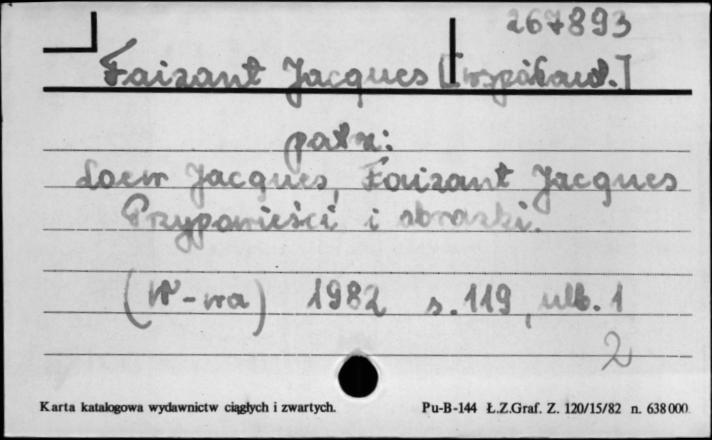 267893
Faizant Jacques [współaut.]
patrz:
Loew Jacques, Faizant Jacques
Przypowieści i obrazki.
(W-wa) 1982 s. 119, nlb. 1
2
Karta katalogowa wydawnictw ciągłych i zwartych. Pu-B-144 Ł.Z.Graf. Z. 120/15/82 n. 638000